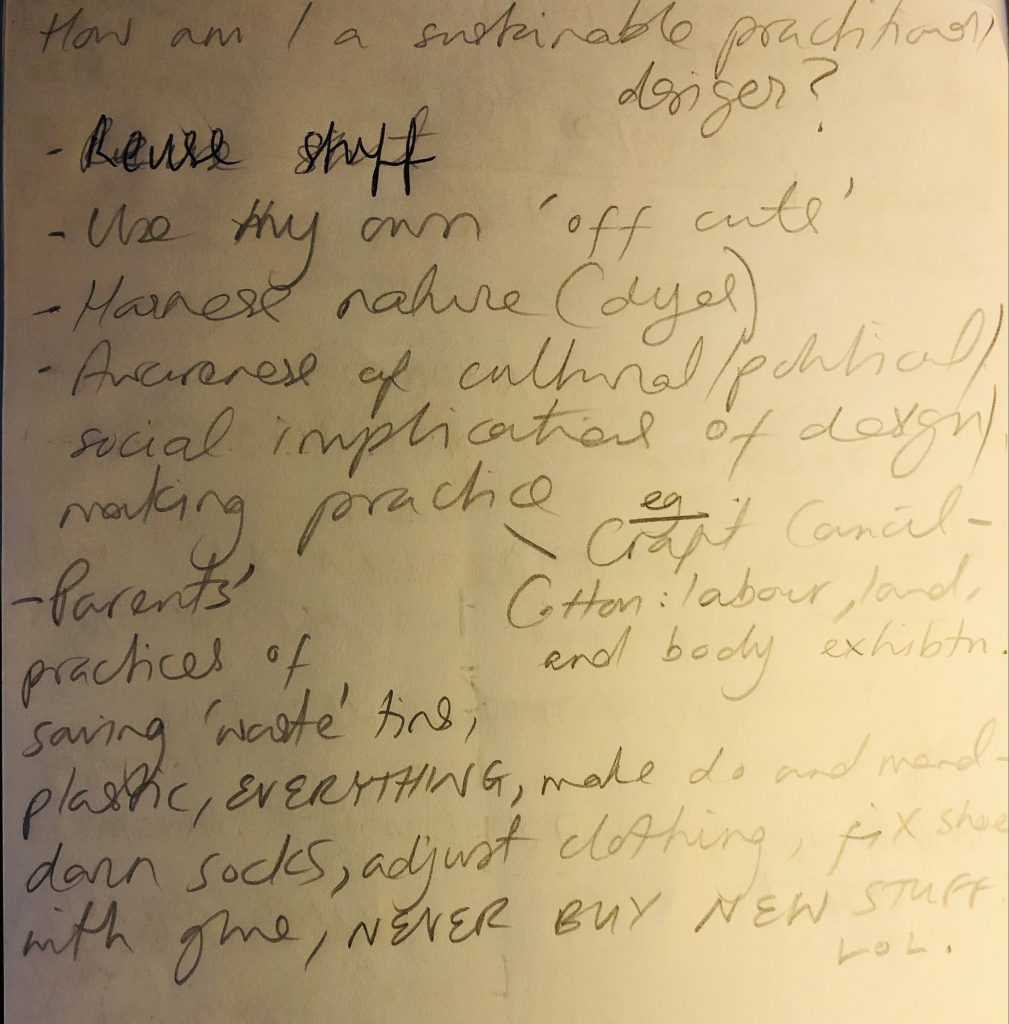 How am I a sustainable practitioner/
designer?
- Reuse stuff
- Use my own 'off cuts'
- Harness nature (dyes)
- Awareness of cultural/political/
social implications of design/
making practice
eg
\ Craft Council -
Cotton: labour, land,
and body exhibtn.
- Parents'
practices of
saving 'waste' tins,
plastic, EVERYTHING, make do and mend -
darn socks, adjust clothing, fix shoe
with glue, NEVER BUY NEW STUFF.
LOL.